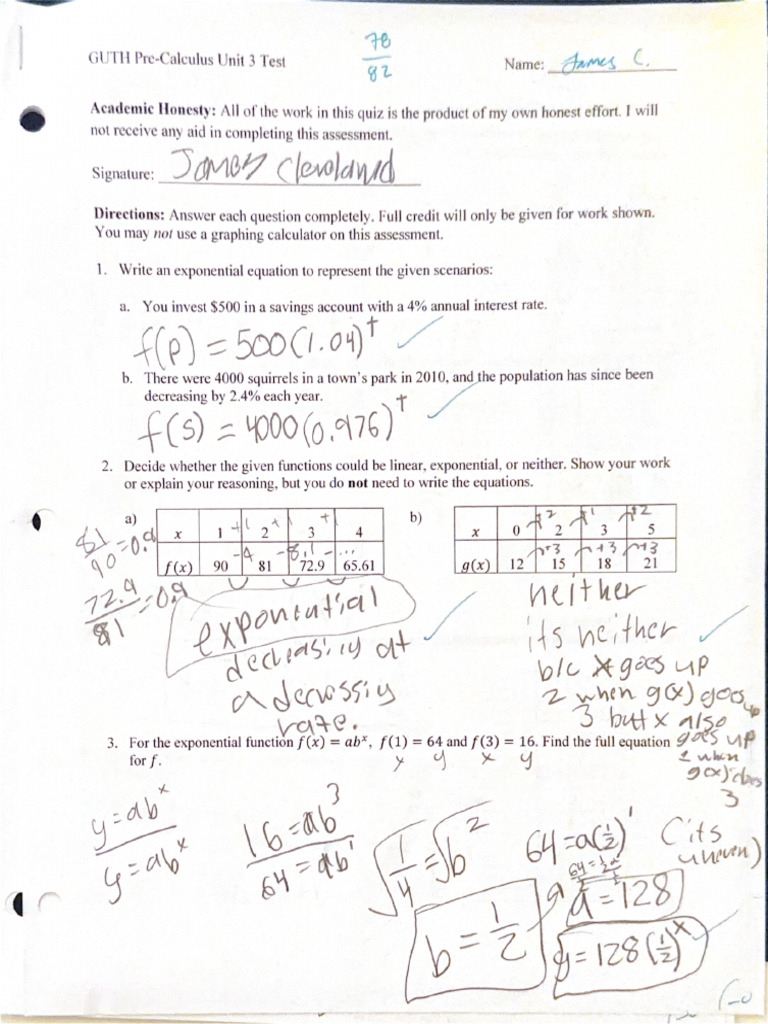 GUTH Pre-Calculus Unit 3 Test
78
82
Name: James C.
Academic Honesty: All of the work in this quiz is the product of my own honest effort. I will
not receive any aid in completing this assessment.
Signature: James Cleveland
Directions: Answer each question completely. Full credit will only be given for work shown.
You may not use a graphing calculator on this assessment.
1. Write an exponential equation to represent the given scenarios:
a. You invest $500 in a savings account with a 4% annual interest rate.
f(p) = 500(1.04)^t
b. There were 4000 squirrels in a town's park in 2010, and the population has since been
decreasing by 2.4% each year.
f(s) = 4000(0.976)^t
2. Decide whether the given functions could be linear, exponential, or neither. Show your work
or explain your reasoning, but you do not need to write the equations.
a)
+1 + +
x 1 2 3 4
-9 -8.1 -...
f(x) 90 81 72.9 65.61
81/90 = 0.9
72.9/81 = 0.9
exponential
decreasing at
a decreasing
rate.
b)
+2 +1 +2
x 0 2 3 5
+3 +3 +3
g(x) 12 15 18 21
neither
its neither
b/c x goes up
2 when g(x) goes up
3 but x also
goes up
1 when
g(x) does
3
(its
uneven)
3. For the exponential function f(x) = ab^x, f(1) = 64 and f(3) = 16. Find the full equation
for f.
x y x y
y = ab^x
y = ab^x
16 = ab^3
64 = ab^1
√1/4 = √b^2
b = 1/2
64 = a(1/2)^1
a = 128
y = 128(1/2)^x